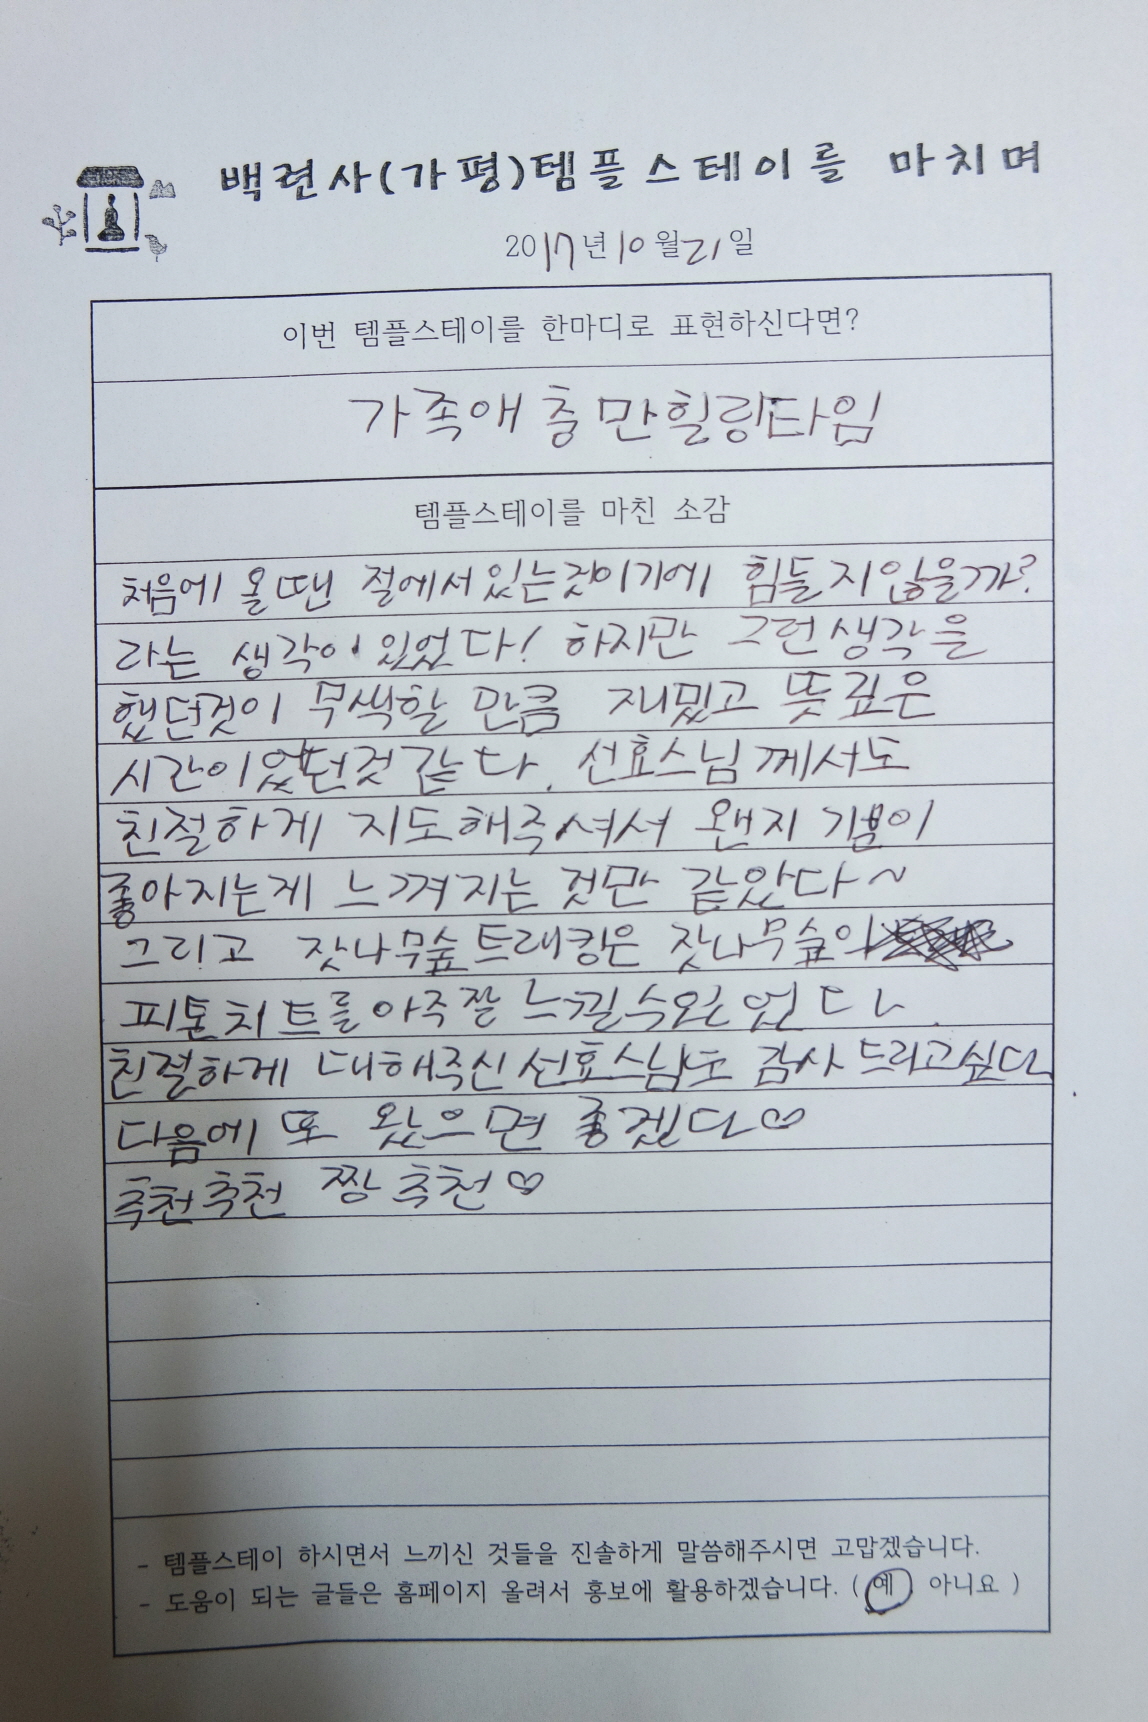 백련사(가평)템플스테이를 마치며
2017년 10월 21일
이번 템플스테이를 한마디로 표현하신다면?
가족애 충만힐링타임
템플스테이를 마친 소감
처음에 올땐 절에서있는것이기에 힘들지않을까?
라는 생각이 있었다! 하지만 그런생각을
했던것이 무색할 만큼 재밌고 뜻깊은
시간이었던것 같다. 선효스님께서도
친절하게 지도해주셔서 왠지 기분이
좋아지는게 느껴지는 것만 같았다~
그리고 잣나무숲트래킹은 잣나무숲의
피톤치트를 아주잘 느낄수있었다.
친절하게 대해주신 선효스님도 감사 드리고싶다
다음에 또 왔으면 좋겠다♡
추천추천 짱 추천♡
- 템플스테이 하시면서 느끼신 것들을 진솔하게 말씀해주시면 고맙겠습니다.
- 도움이 되는 글들은 홈페이지 올려서 홍보에 활용하겠습니다. ( 예 아니요 )